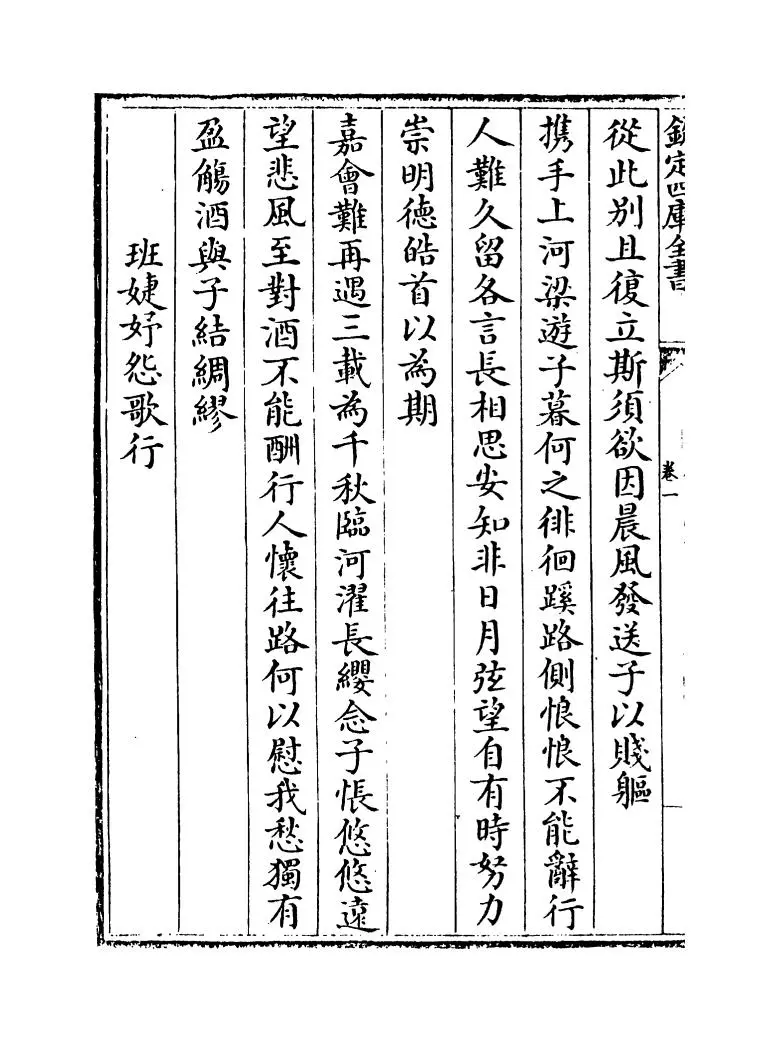 欽定四庫全書
卷一
從此别且復立斯須欲因晨風發送子以賤軀
携手上河梁遊子暮何之徘徊蹊路側悢悢不能辭行
人難久留各言長相思安知非日月弦望自有時努力
崇明德皓首以為期
嘉會難再遇三載為千秋臨河濯長纓念子悵悠悠遠
望悲風至對酒不能酬行人懷往路何以慰我愁獨有
盈觴酒與子結綢繆
班婕妤怨歌行